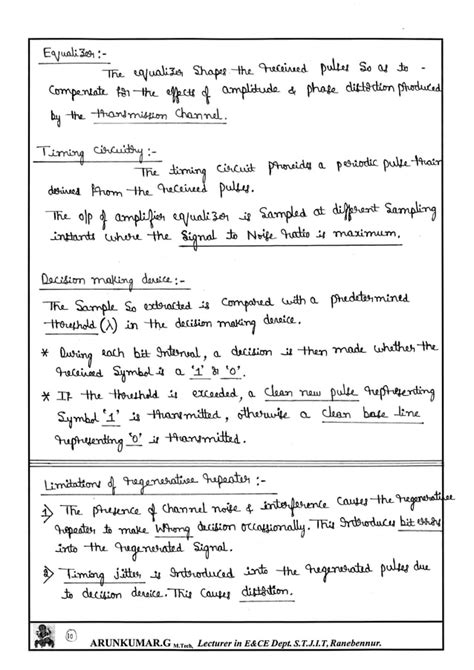 Equalizer :-
The equalizer shapes the received pulses so as to -
compensate for the effects of amplitude & phase distortion produced
by the transmission channel.
Timing Circuitry :-
The timing circuit provides a periodic pulse train
derived from the received pulses.
The o/p of amplifier equalizer is sampled at different sampling
instants where the signal to Noise ratio is maximum.
Decision making device :-
The sample so extracted is compared with a predetermined
threshold (λ) in the decision making device.
* During each bit interval, a decision is then made whether the
received symbol is a '1' or '0'.
* If the threshold is exceeded, a clean new pulse representing
symbol '1' is transmitted, otherwise a clean base line
representing '0' is transmitted.
Limitations of regenerative repeater :-
1) The presence of channel noise & interference causes the regenerative
repeater to make wrong decision occassionally. This introduces bit errors
into the regenerated signal.
2) Timing jitter is introduced into the regenerated pulses due
to decision device. This causes distortion.
10
ARUNKUMAR.G M.Tech, Lecturer in E&CE Dept. S.T.J.I.T, Ranebennur.